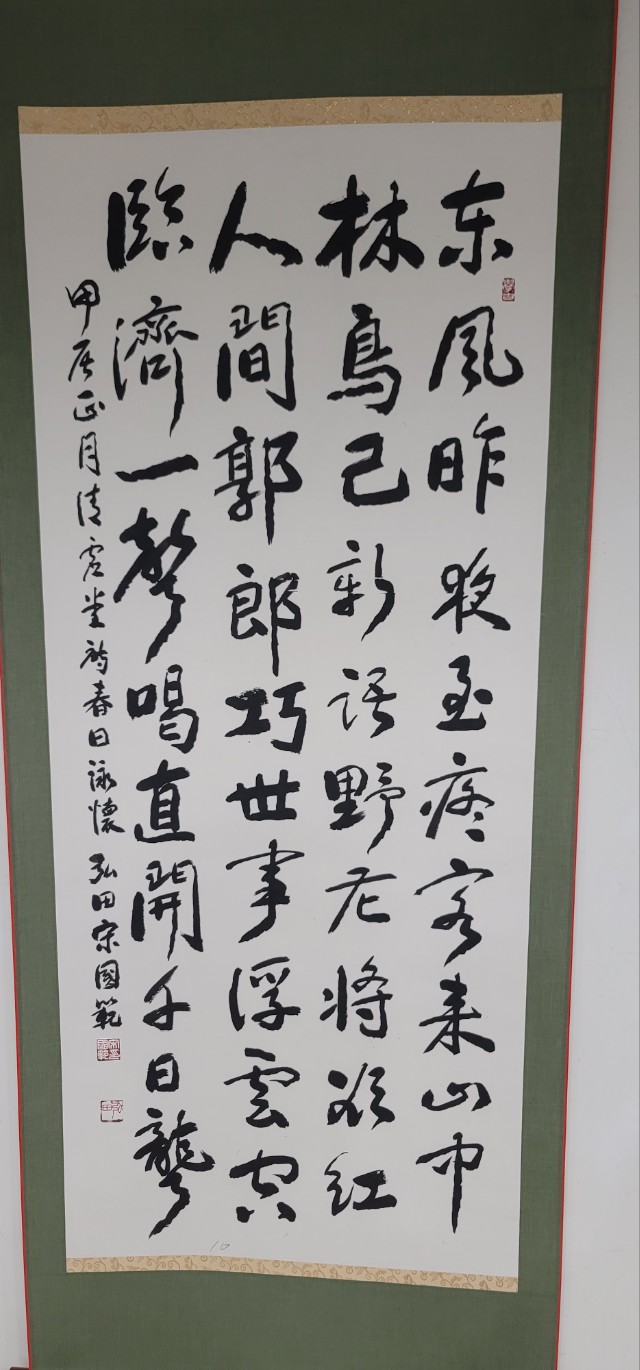 東風昨夜至病客来山中
林鳥已新語野花將欲紅
人間郭郎巧世事浮雲空
臨濟一聲喝直開千日聾
甲辰正月清虛堂詩春日詠懷 弘田宋國範
10